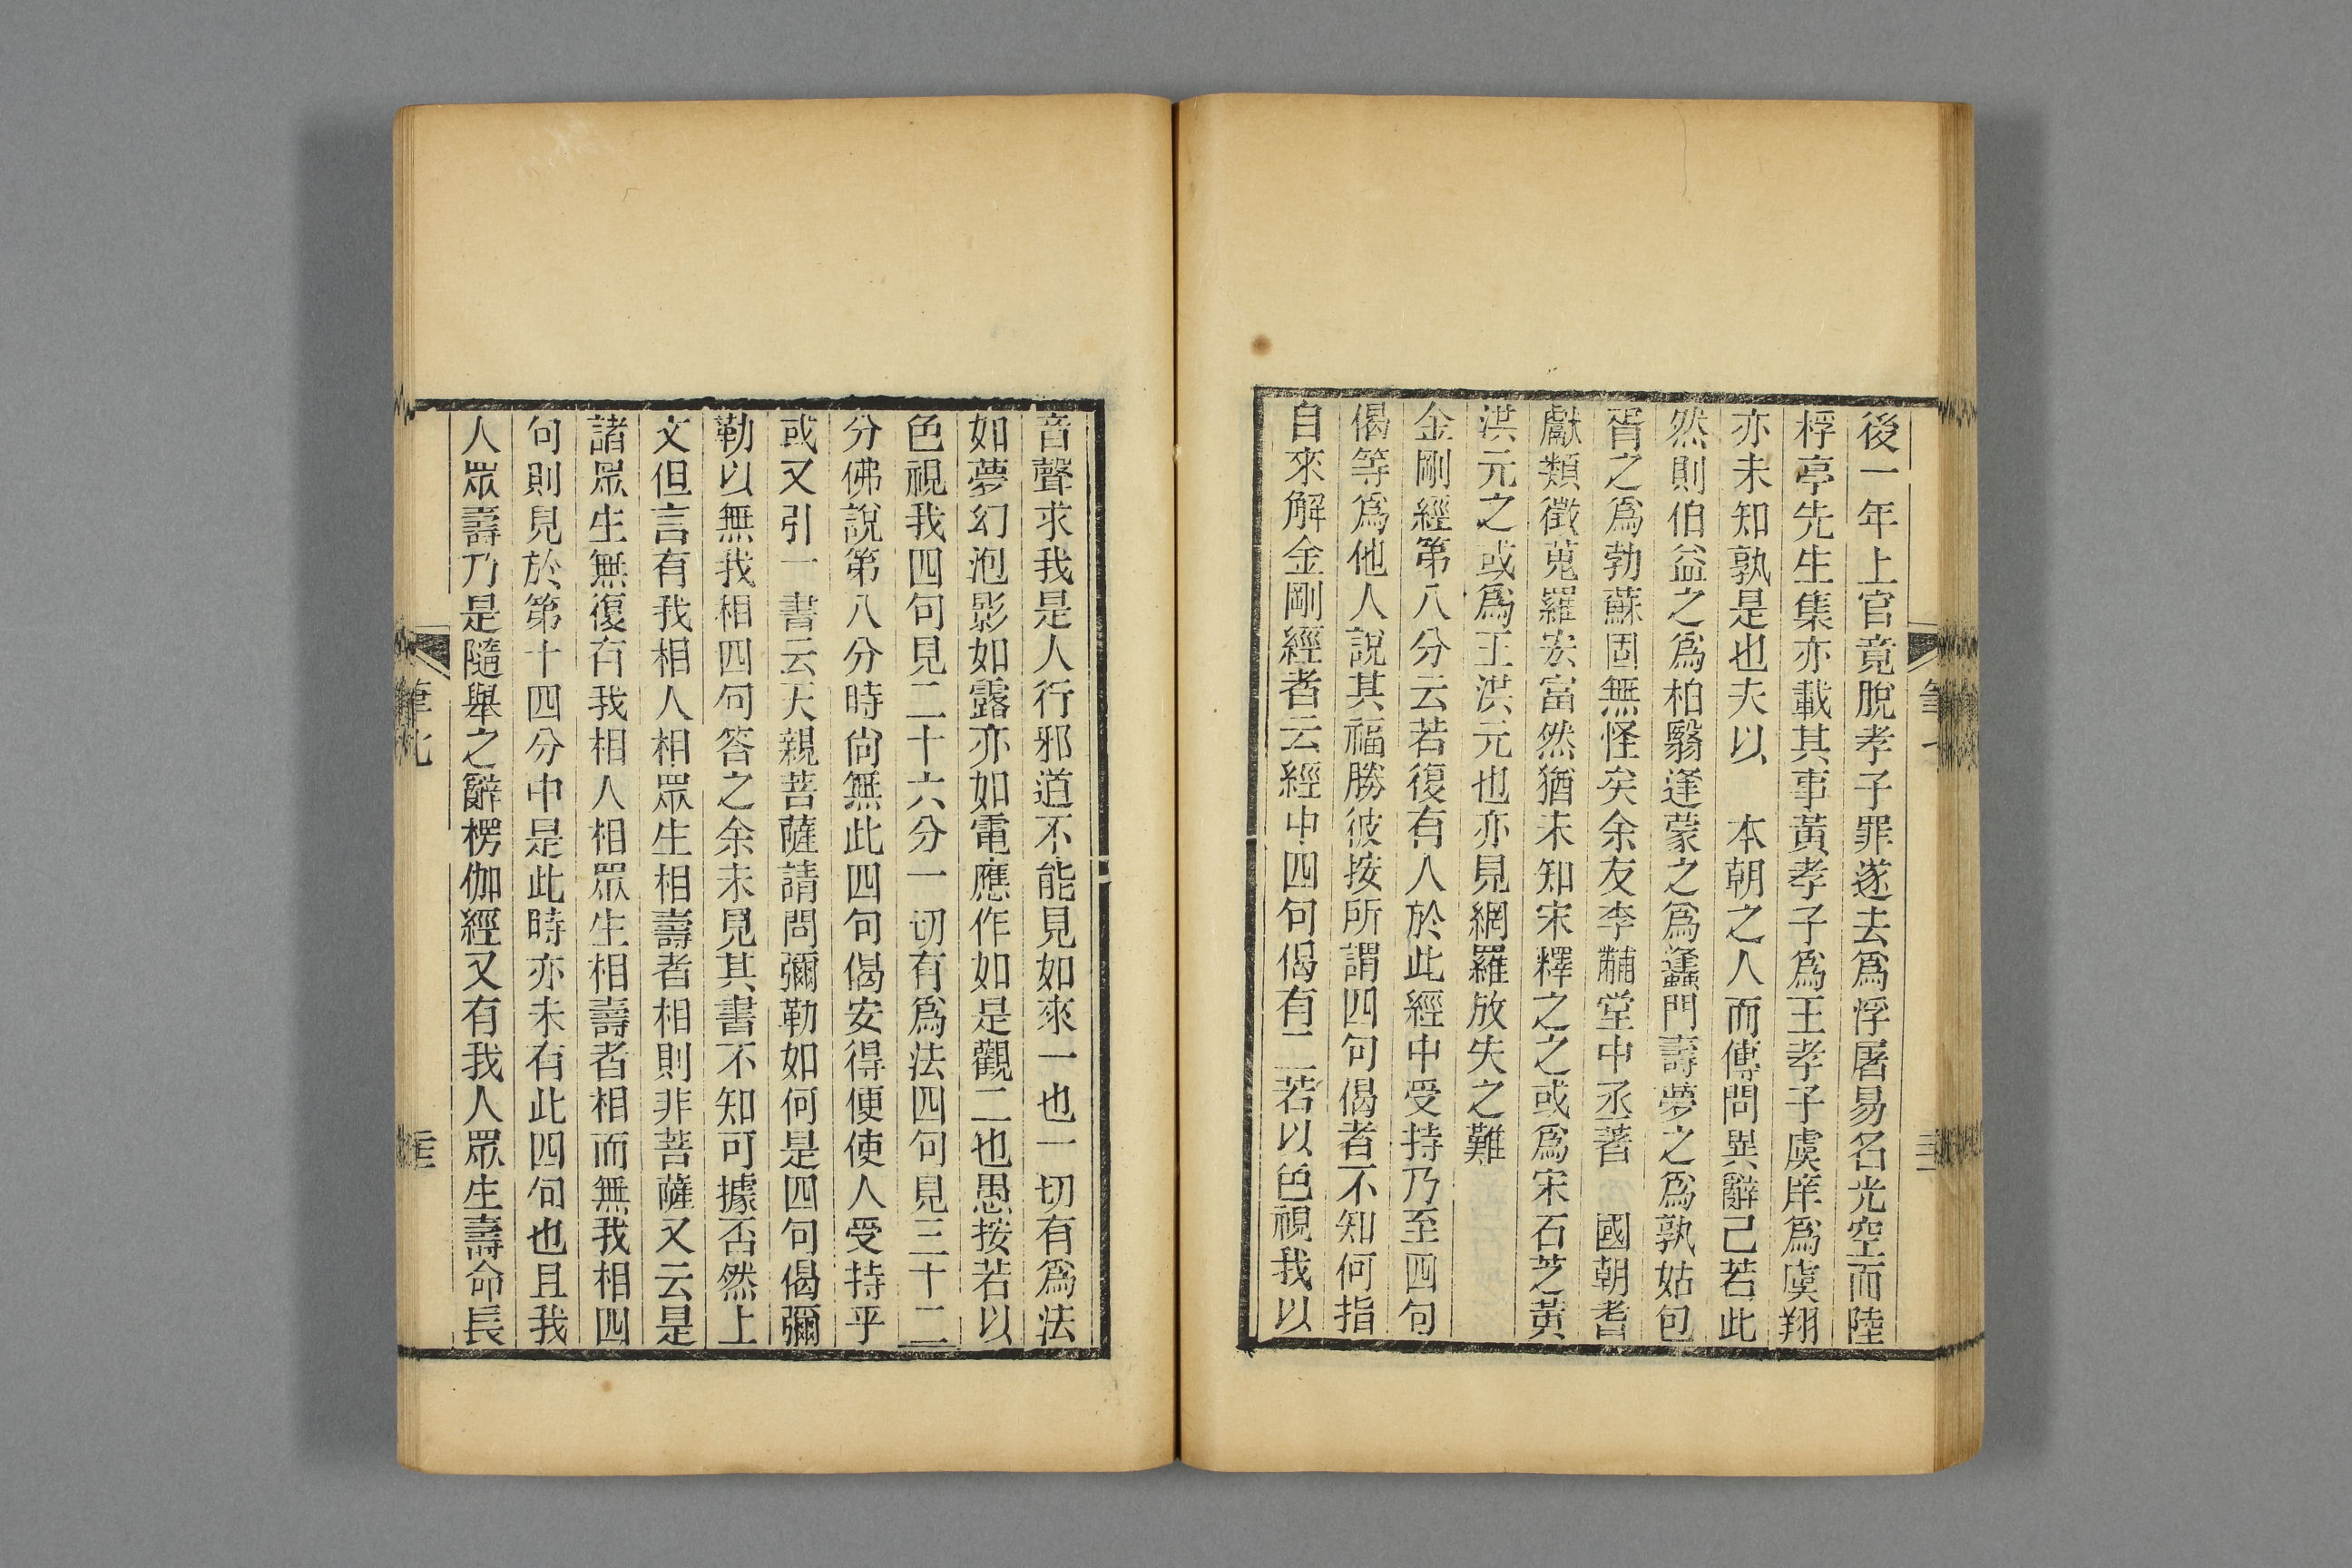 後一年上官竟脫孝子罪遂去爲浮屠易名光空而陸
桴亭先生集亦載其事黃孝子爲王孝子虞庠爲虞翔
亦未知孰是也夫以　本朝之人而傳問異辭己若此
然則伯益之爲柏翳逢蒙之爲蠭門壽夢之爲孰姑包
胥之爲勃蘇固無怪矣余友李黼堂中丞著　國朝耆
獻類徵蒐羅宏富然猶未知宋釋之之或爲宋石芝黃
洪元之或爲王洪元也亦見網羅放失之難
金剛經第八分云若復有人於此經中受持乃至四句
偈等爲他人說其福勝彼按所謂四句偈者不知何指
自來解金剛經者云經中四句偈有二若以色視我以
音聲求我是人行邪道不能見如來一也一切有爲法
如夢幻泡影如露亦如電應作如是觀二也愚按若以
色視我四句見二十六分一切有爲法四句見三十二
分佛說第八分時尙無此四句偈安得便使人受持乎
或又引一書云天親菩薩請問彌勒如何是四句偈彌
勒以無我相四句答之余未見其書不知可據否然上
文但言有我相人相眾生相壽者相則非菩薩又云是
諸眾生無復有我相人相眾生相壽者相而無我相四
句則見於第十四分中是此時亦未有此四句也且我
人眾壽乃是隨舉之辭楞伽經又有我人眾生壽命長